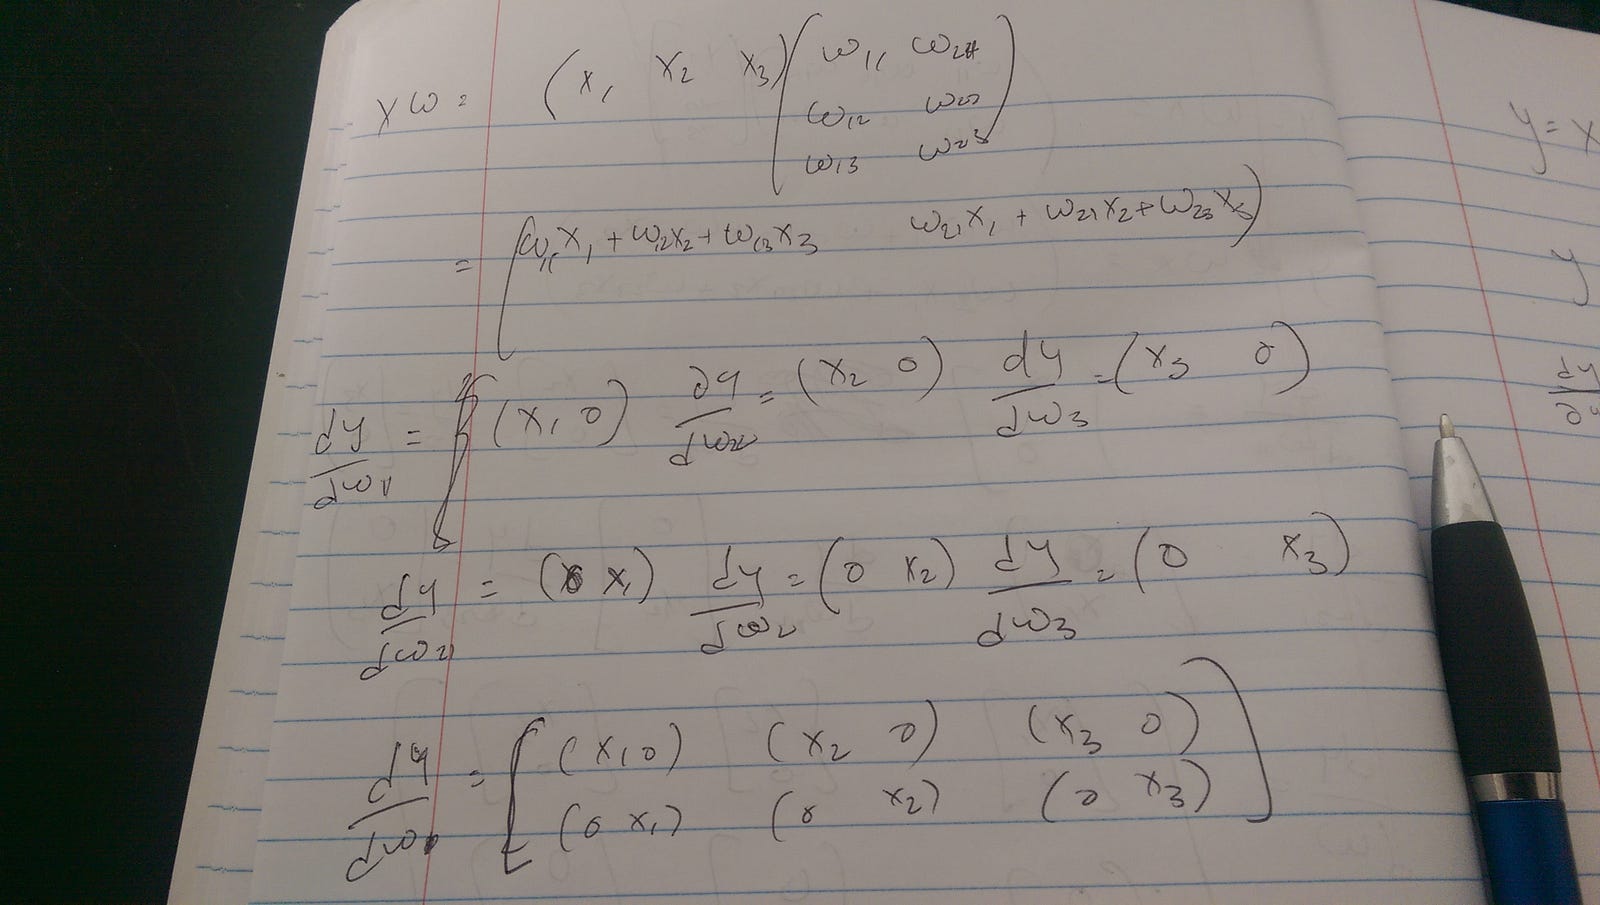 xω = (x₁ x₂ x₃) (ω₁₁ ω₂₁
ω₁₂ ω₂₂
ω₁₃ ω₂₃)
= (ω₁₁x₁ + ω₁₂x₂ + ω₁₃x₃ ω₂₁x₁ + ω₂₁x₂ + ω₂₃x₃)
dy/dω₁ = (x₁ 0) ∂y/dω₂ = (x₂ 0) dy/dω₃ = (x₃ 0)
dy/dω₂₁ = (0 x₁) dy/dω₂ = (0 x₂) dy/dω₃ = (0 x₃)
dy/dω = [(x₁ 0) (x₂ 0) (x₃ 0)
(0 x₁) (0 x₂) (0 x₃)]
y = x
y
dy/∂